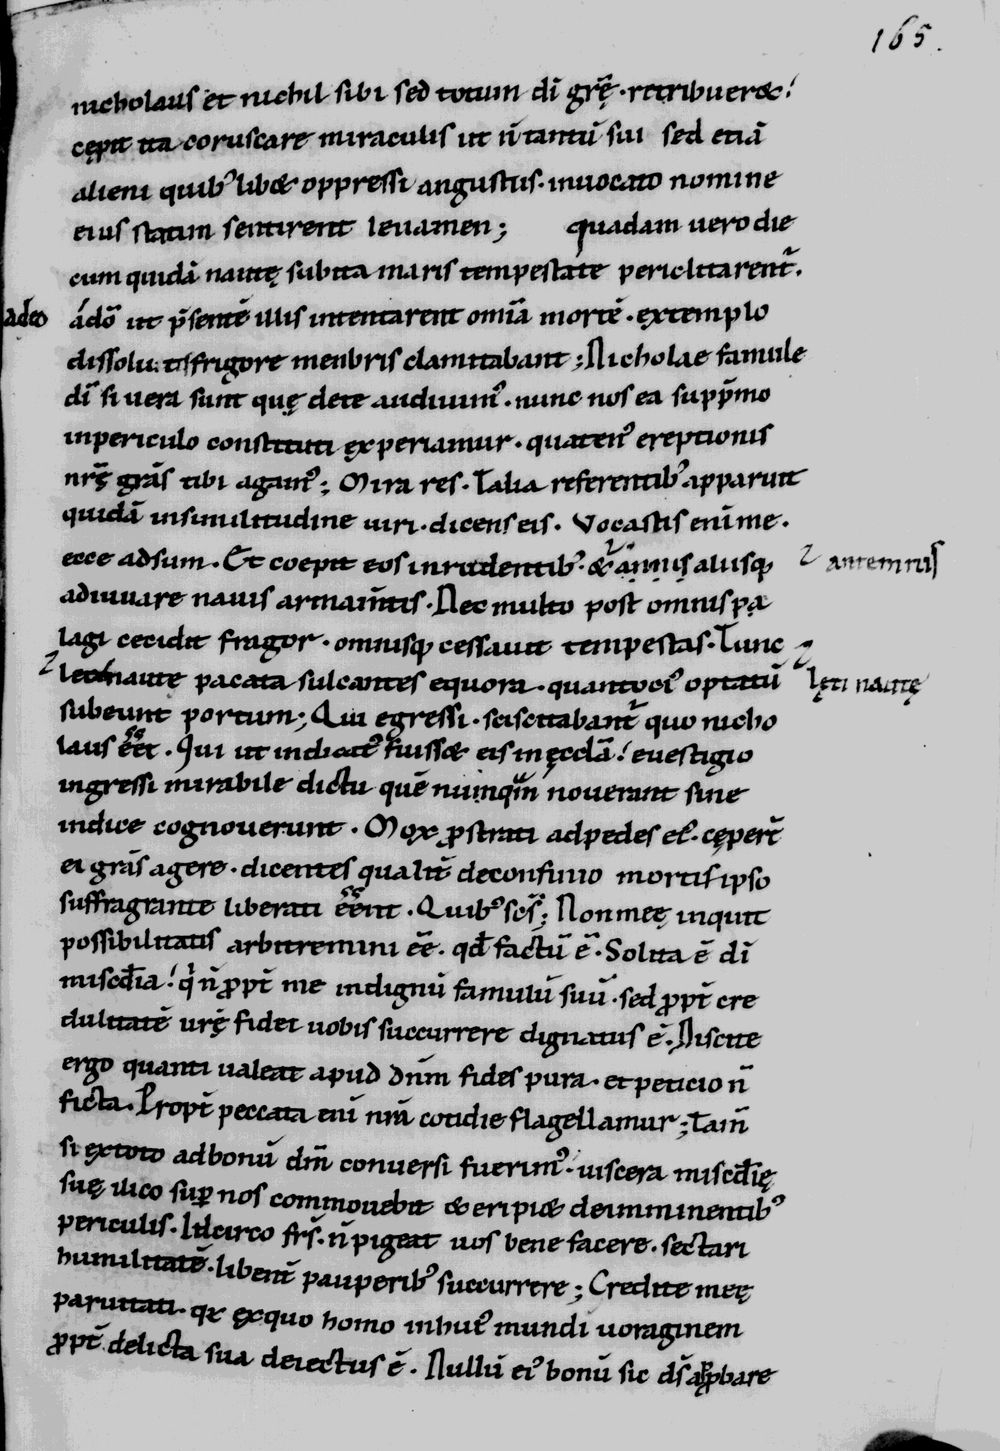 165.
nicholaus et nichil sibi sed totum dī grę̄ · retribueret!
cępit ita coruscare miraculis ut n̄ tantū sui sed etiā
alieni quib' libet oppressi angustiis · inuocato nomine
eius statim sentirent leuamen; quadam uero die
cum quidā nautę subita maris tempestate periclitarent᷑.
adeo
ádō ut p̄sentē illis intentarent om̄ia mortē · extemplo
dissolutis frigore menbris clamitabant; Nicholae famule
dī si uera sunt quę de te audiuim' · nunc nos ea supp̄mo
inpericulo constituti experiamur · quaten' ereptionis
nrę̄ grās tibi agam'; Mira res · Talia referentib' apparuit
quidā insimilitudine uiri · dicens eis · Vocastis enī me ·
ecce adsum · Et coepit eos inrudentib' · & annis aliisq;
antemnis
adiuuare nauis armam̄tis · Nec multo post omnis pa
lagi cecidit fragor · omnisq; cessauit tempestas · Tunc
naute pacata sulcantes equora · quantoci' optatū
lęti nautę
subeunt portum; Qui egressi · sciscitabant᷑ quo nicho
laus eēt · Qui ut indicat᷑ fuisset eis in ęcclā! euestigio
ingressi mirabile dictu quē nunq̄m nouerant sine
indice cognouerunt · Mox ꝓstrati adpedes ei' · cępert̄
ei grās agere · dicentes qualit̄ deconfinio mortis ipso
suffragante liberati eēnt · Quib' scs̄; Non meę inquit
possibilitatis arbitremini eē · qd̄ factū ē · Solita ē dī
miscd̄ia! q̇ n̄ ꝓpt̄ me indignū famulū suū · sed ꝓpt̄ cre
dulitatē urę̄ fidei uobis succurrere dignatus ē · Discite
ergo quanti ualeat apud dn̄m fides pura · et peticio n̄
ficta · Propt̄ peccata enī nr̄a cotidie flagellamur; Tam̄
si extoto adbonū dn̄m conuersi fuerim' · uiscera miscd̄ię
suę ilico suꝑ nos commouebit & eripiet deimminentib'
periculis · Idcirco frs̄ · n̄ pigeat uos bene facere · sectari
humilitatē · libent̄ pauperib' succurrere; Credite meę
paruitati · qr exquo homo inhui' mundi uoraginem
ꝓpt̄ delicta sua deiectus ē · Nullū ei' bonū sic ds̄ aꝓbare